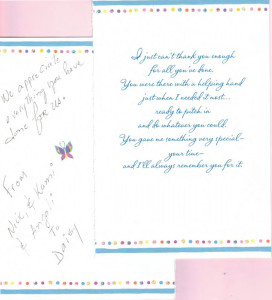 We appreciate
everything you have
done for us.
From
&
To
I just can't thank you enough
for all you've done.
You were there with a helping hand
just when I needed it most...
ready to pitch in
and do whatever you could.
You gave me something very special—
your time—
and I'll always remember you for it.